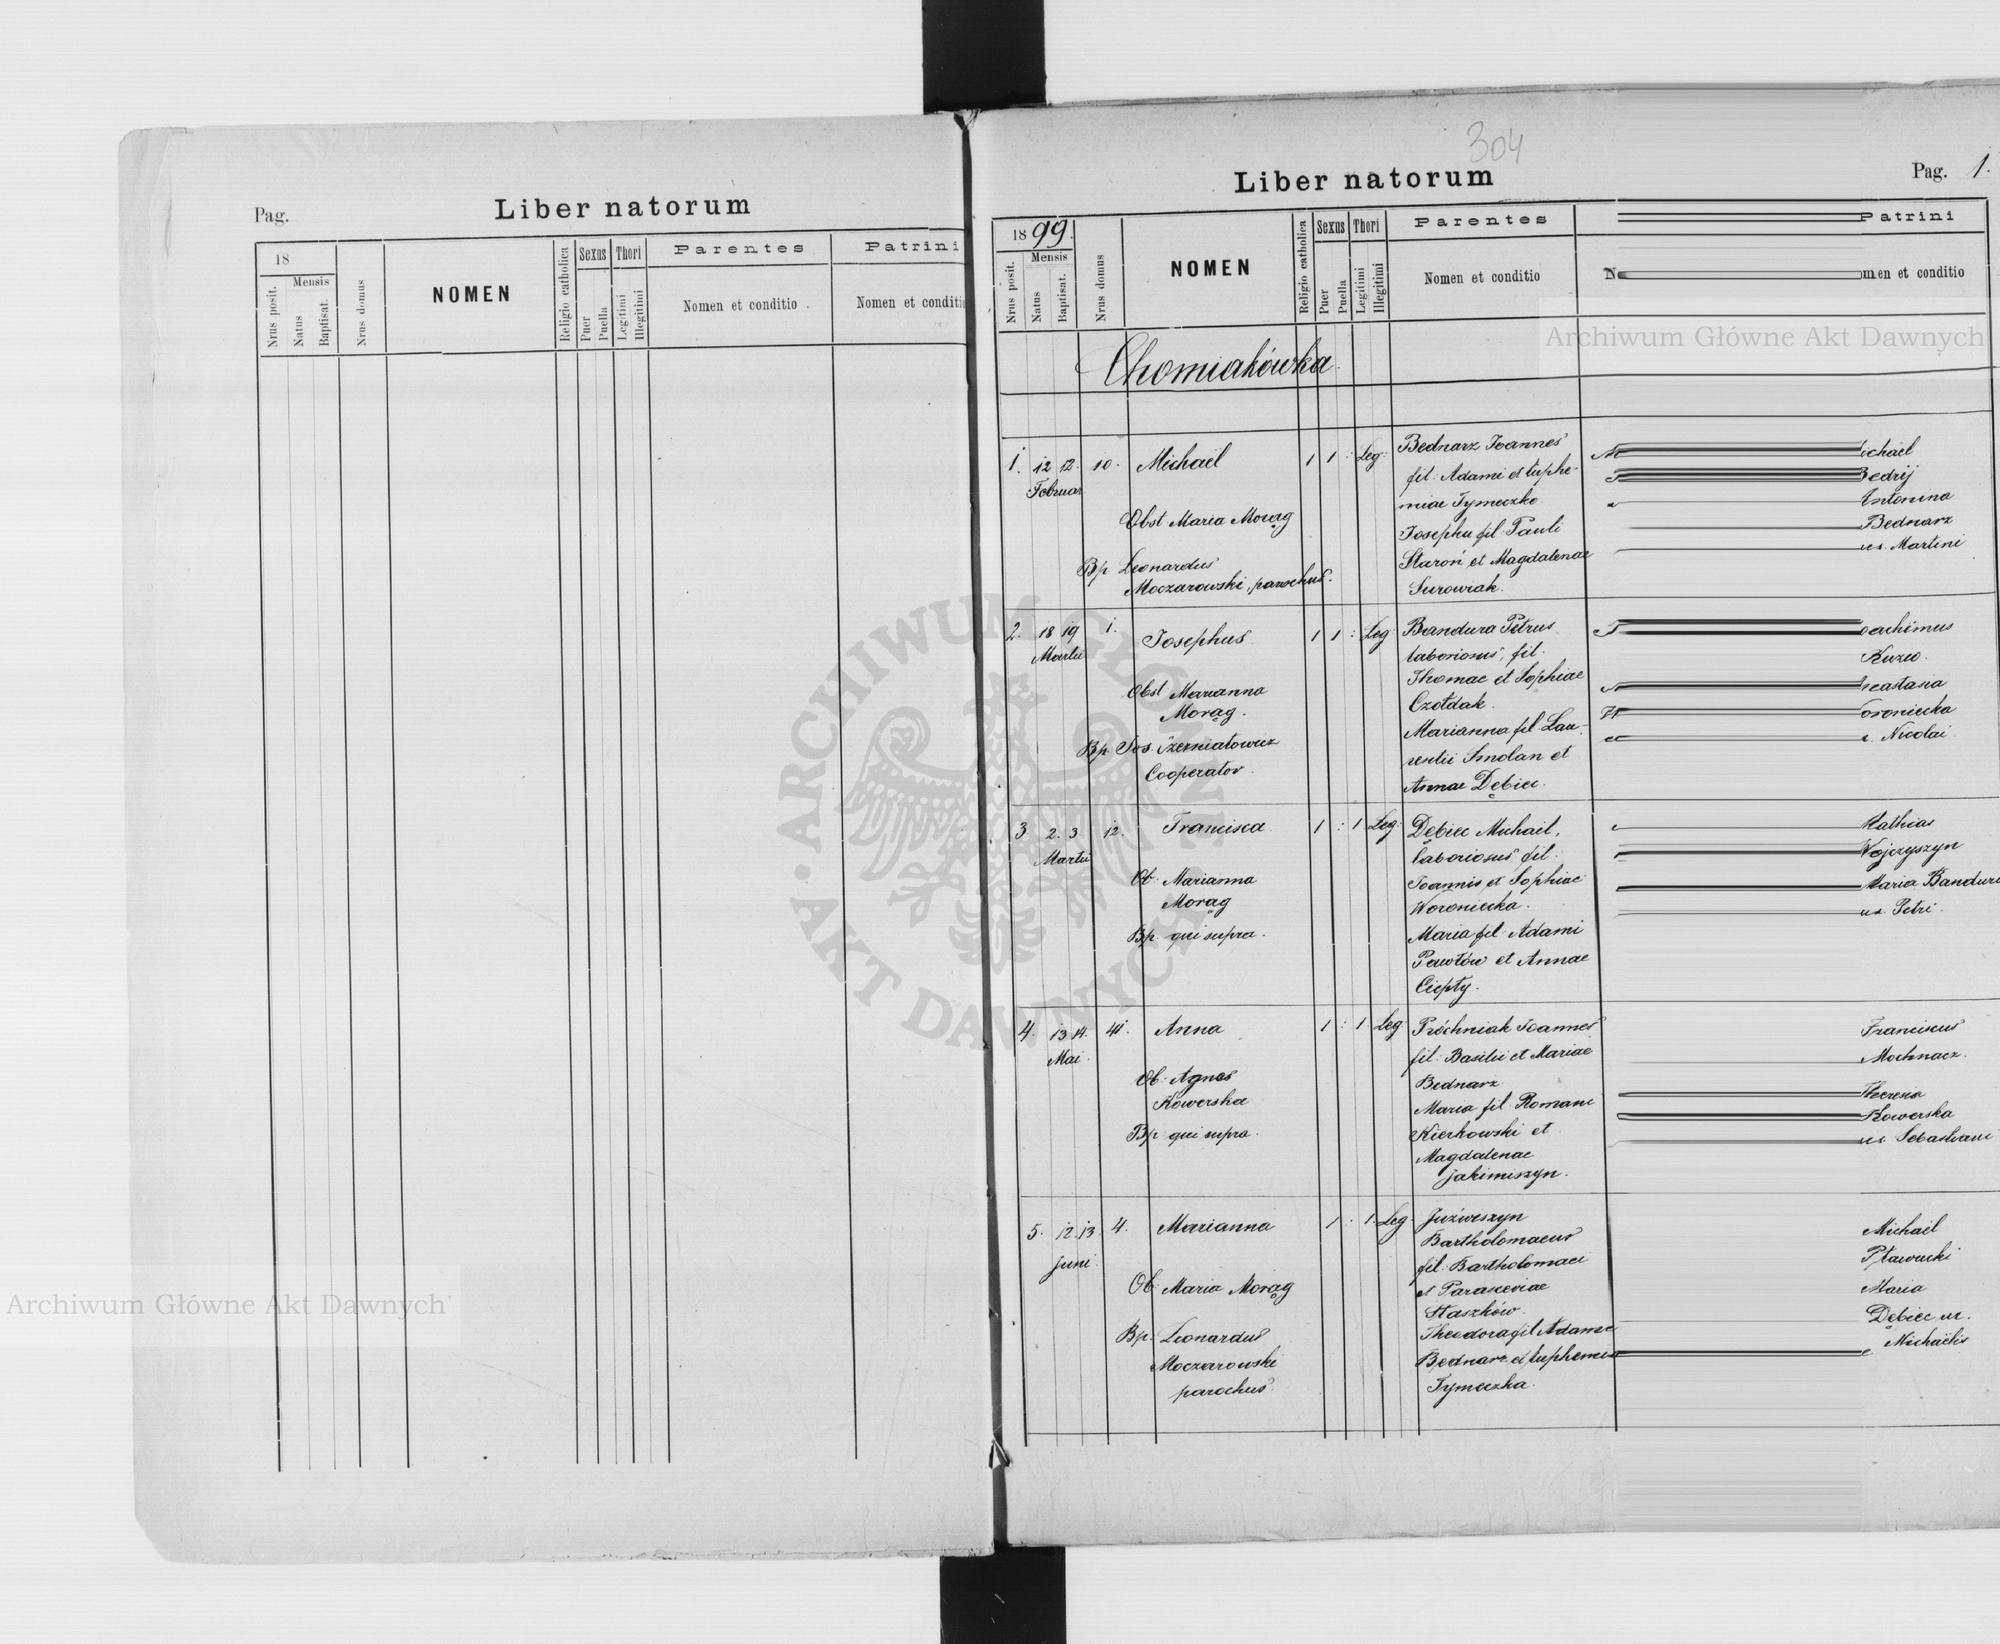 Pag.
Liber natorum
18
Mensis
Nrus posit.
Natus
Baptisat.
Nrus domus
NOMEN
Religio catholica
Sexus
Puer
Puella
Thori
Legitimi
Illegitimi
Parentes
Nomen et conditio
Patrini
Nomen et conditi
304
Liber natorum
Pag. 1.
1899.
Mensis
Nrus posit.
Natus
Baptisat.
Nrus domus
NOMEN
Religio catholica
Sexus
Puer
Puella
Thori
Legitimi
Illegitimi
Parentes
Nomen et conditio
Patrini
N men et conditio
Archiwum Główne Akt Dawnych
Chomiakówka
1. 12 12. 10. Michaël 1 1 : Leg:
Februar
Obst Maria Morąg
Bp Leonardus
Moczarowski, parochus.
Bednarz Joannes
fil: Adami et Euphe-
miae Tymeczko
Josepha fil Pauli
Staroń et Magdalenae
Surowiak.
ichaël
Bedrij
Antonina
Bednarz
ux. Martini
2. 18 19 1. Josephus 1 1 : Leg:
Martii
Obst Marianna
Morąg.
Bp. Jos. Czerniatowicz
Cooperator.
Bandura Petrus
laboriosus, fil.
Thomae et Sophiae
Czołdak.
Marianna fil Lau-
rentii Smolan et
Annae Dębiec.
J oachimus
Kuzio.
astasia
W oroniecka
Nicolai
3 2. 3. 12. Francisca 1 : 1 Leg:
Martii
Ob. Marianna
Morąg
Bp. qui supra.
Dębiec Michaël,
laboriosus fil.
Joannis et Sophiae
Woroniecka.
Maria fil Adami
Pawłów et Annae
Ciepły.
Mathias
Wojczyszyn
Maria Bandura
ux. Petri.
4. 13 14. 41. Anna 1 : 1 Leg:
Mai.
Ob. Agnes
Kowerska
Bp. qui supra.
Próchniak Joannes
fil. Basilii et Mariae
Bednarz
Maria fil Romani
Kierkowski et
Magdalenae
Jakimiszyn.
Franciscus
Mochnacz.
Theresia
Kowerska
ux. Sebastiani
5. 12. 13. 4. Marianna 1 : 1. Leg.
Juni
Ob. Maria Morąg
Bp. Leonardus
Moczarowski
parochus.
Juźwiszyn
Bartholomaeus
fil. Bartholomaei
et Parasceviae
Staszków.
Theodora fil Adami
Bednarz et Euphemiae
Tymeczka.
Michaël
Pławucki
Maria
Dębiec ux.
Michaëlis
ARCHIWUM GŁÓWNE AKT DAWNYCH
Archiwum Główne Akt Dawnych